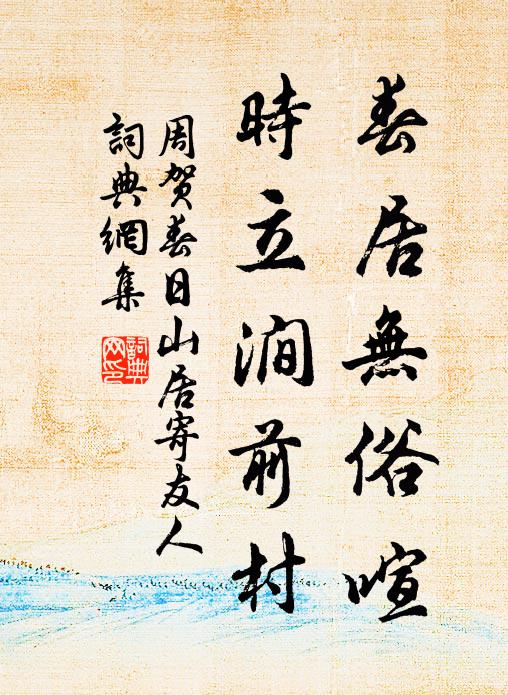 春居無俗喧
時立澗前村
周賀春日山居寄友人
詞典網集
詞典网印